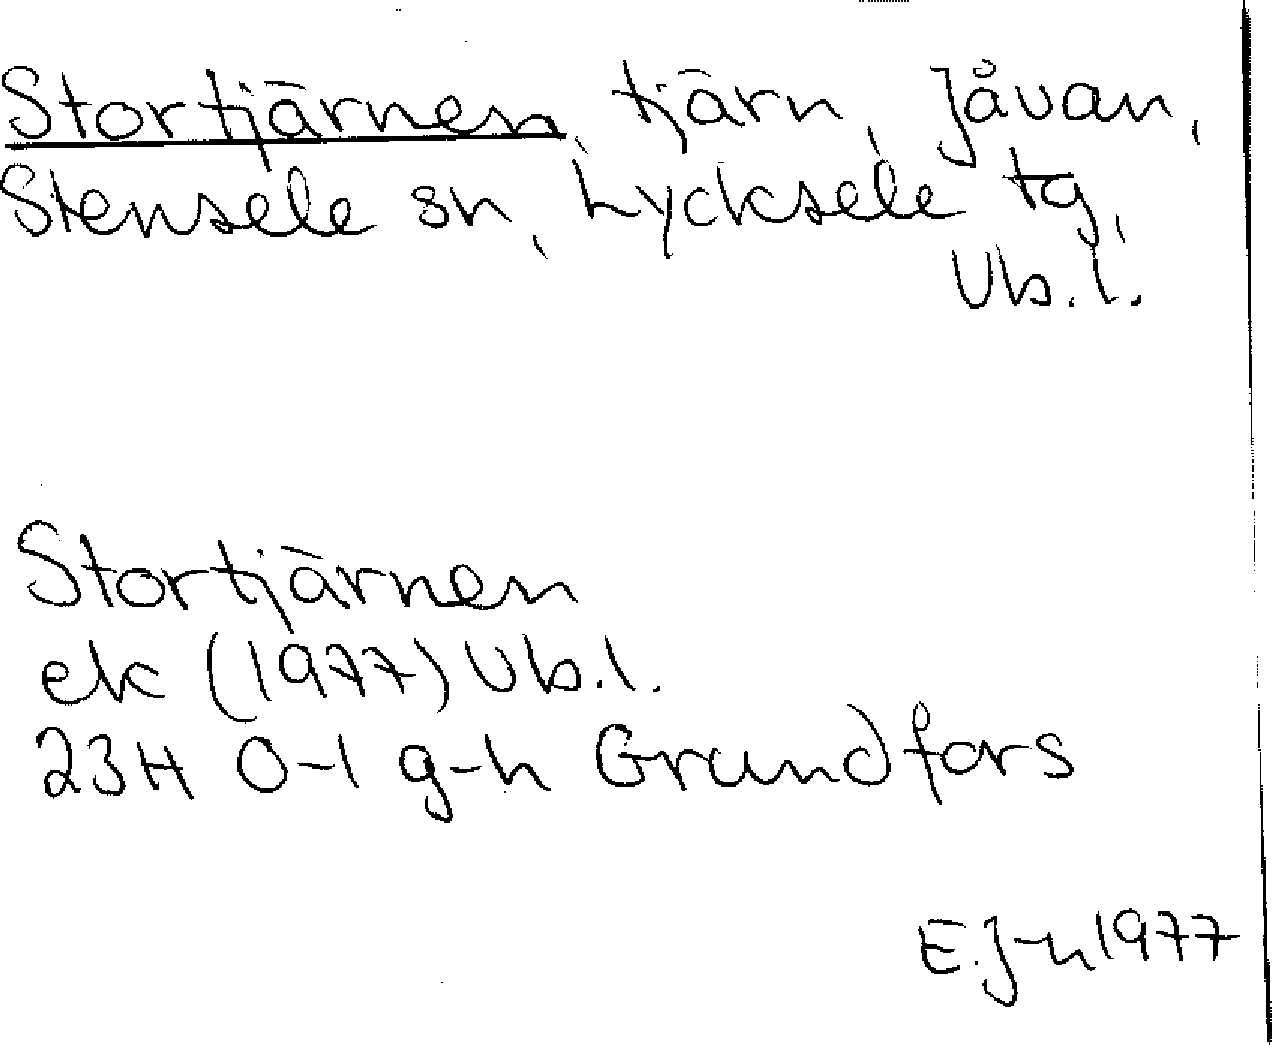 Stortjärnen, tjärn, Jåvan,
Stensele sn, Lycksele tg,
Vb. l.
Stortjärnen
ek (1977) Vb. l.
23H 0-1 g-h Grundfors
E. J-n 1977